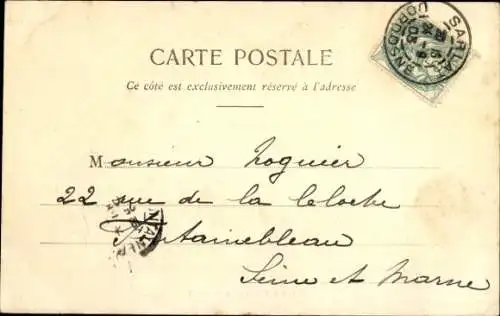 CARTE POSTALE
Ce côté est exclusivement réservé à l'adresse
SARLAT
DORDOGNE
03
Monsieur Noguier
22 rue de la Cloche
Fontainebleau
Seine et Marne